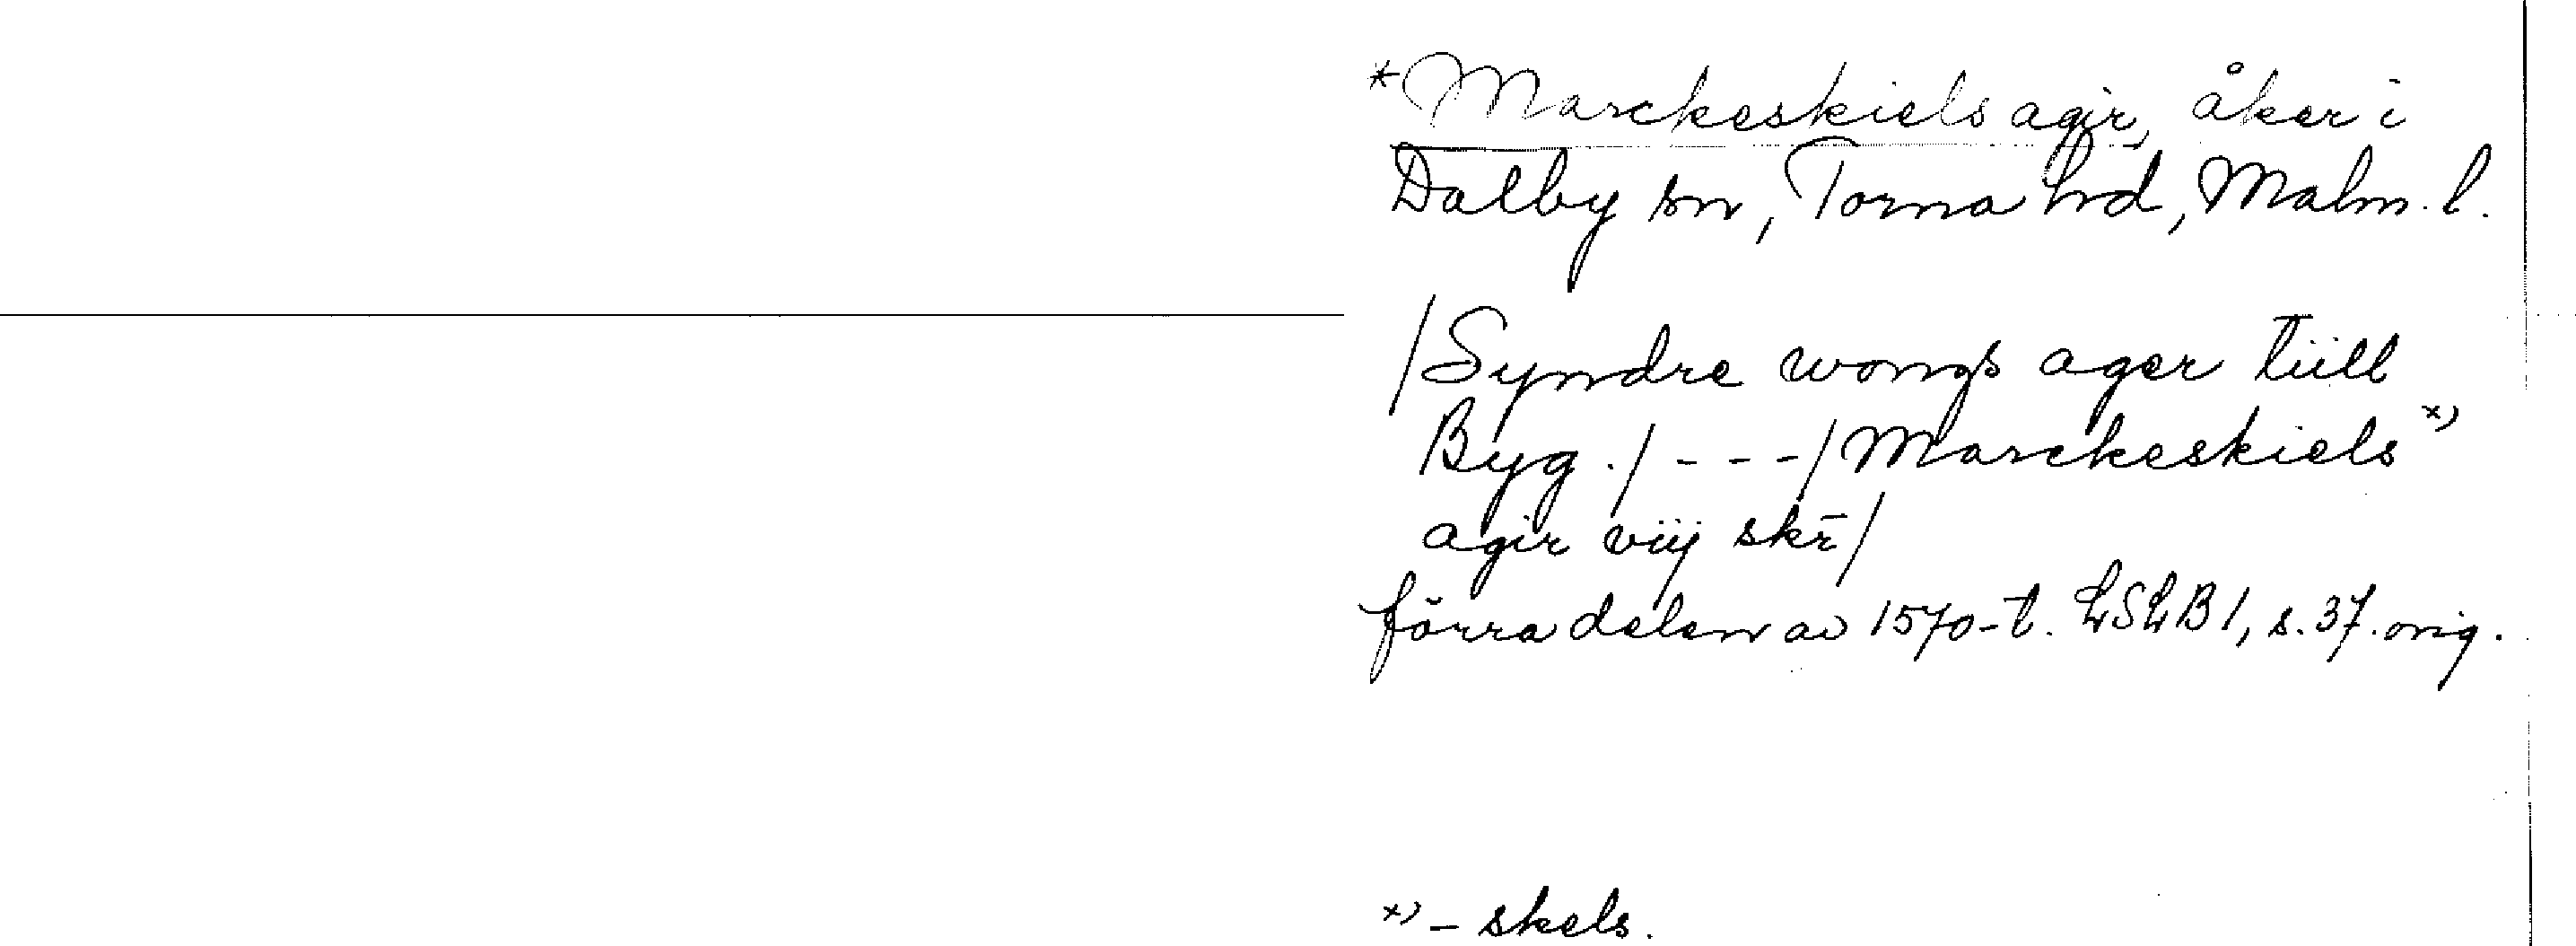 *Marckeskiels agir, åker i
Dalby sn, Torna hd, Malm. l.
/Syndre wongs ager tiill
Byg ./ - - - / Marckeskiels x)
agir viij skr̄ /
förra delen av 1570-t. LSLB 1, s. 37. orig.
x) - skels.